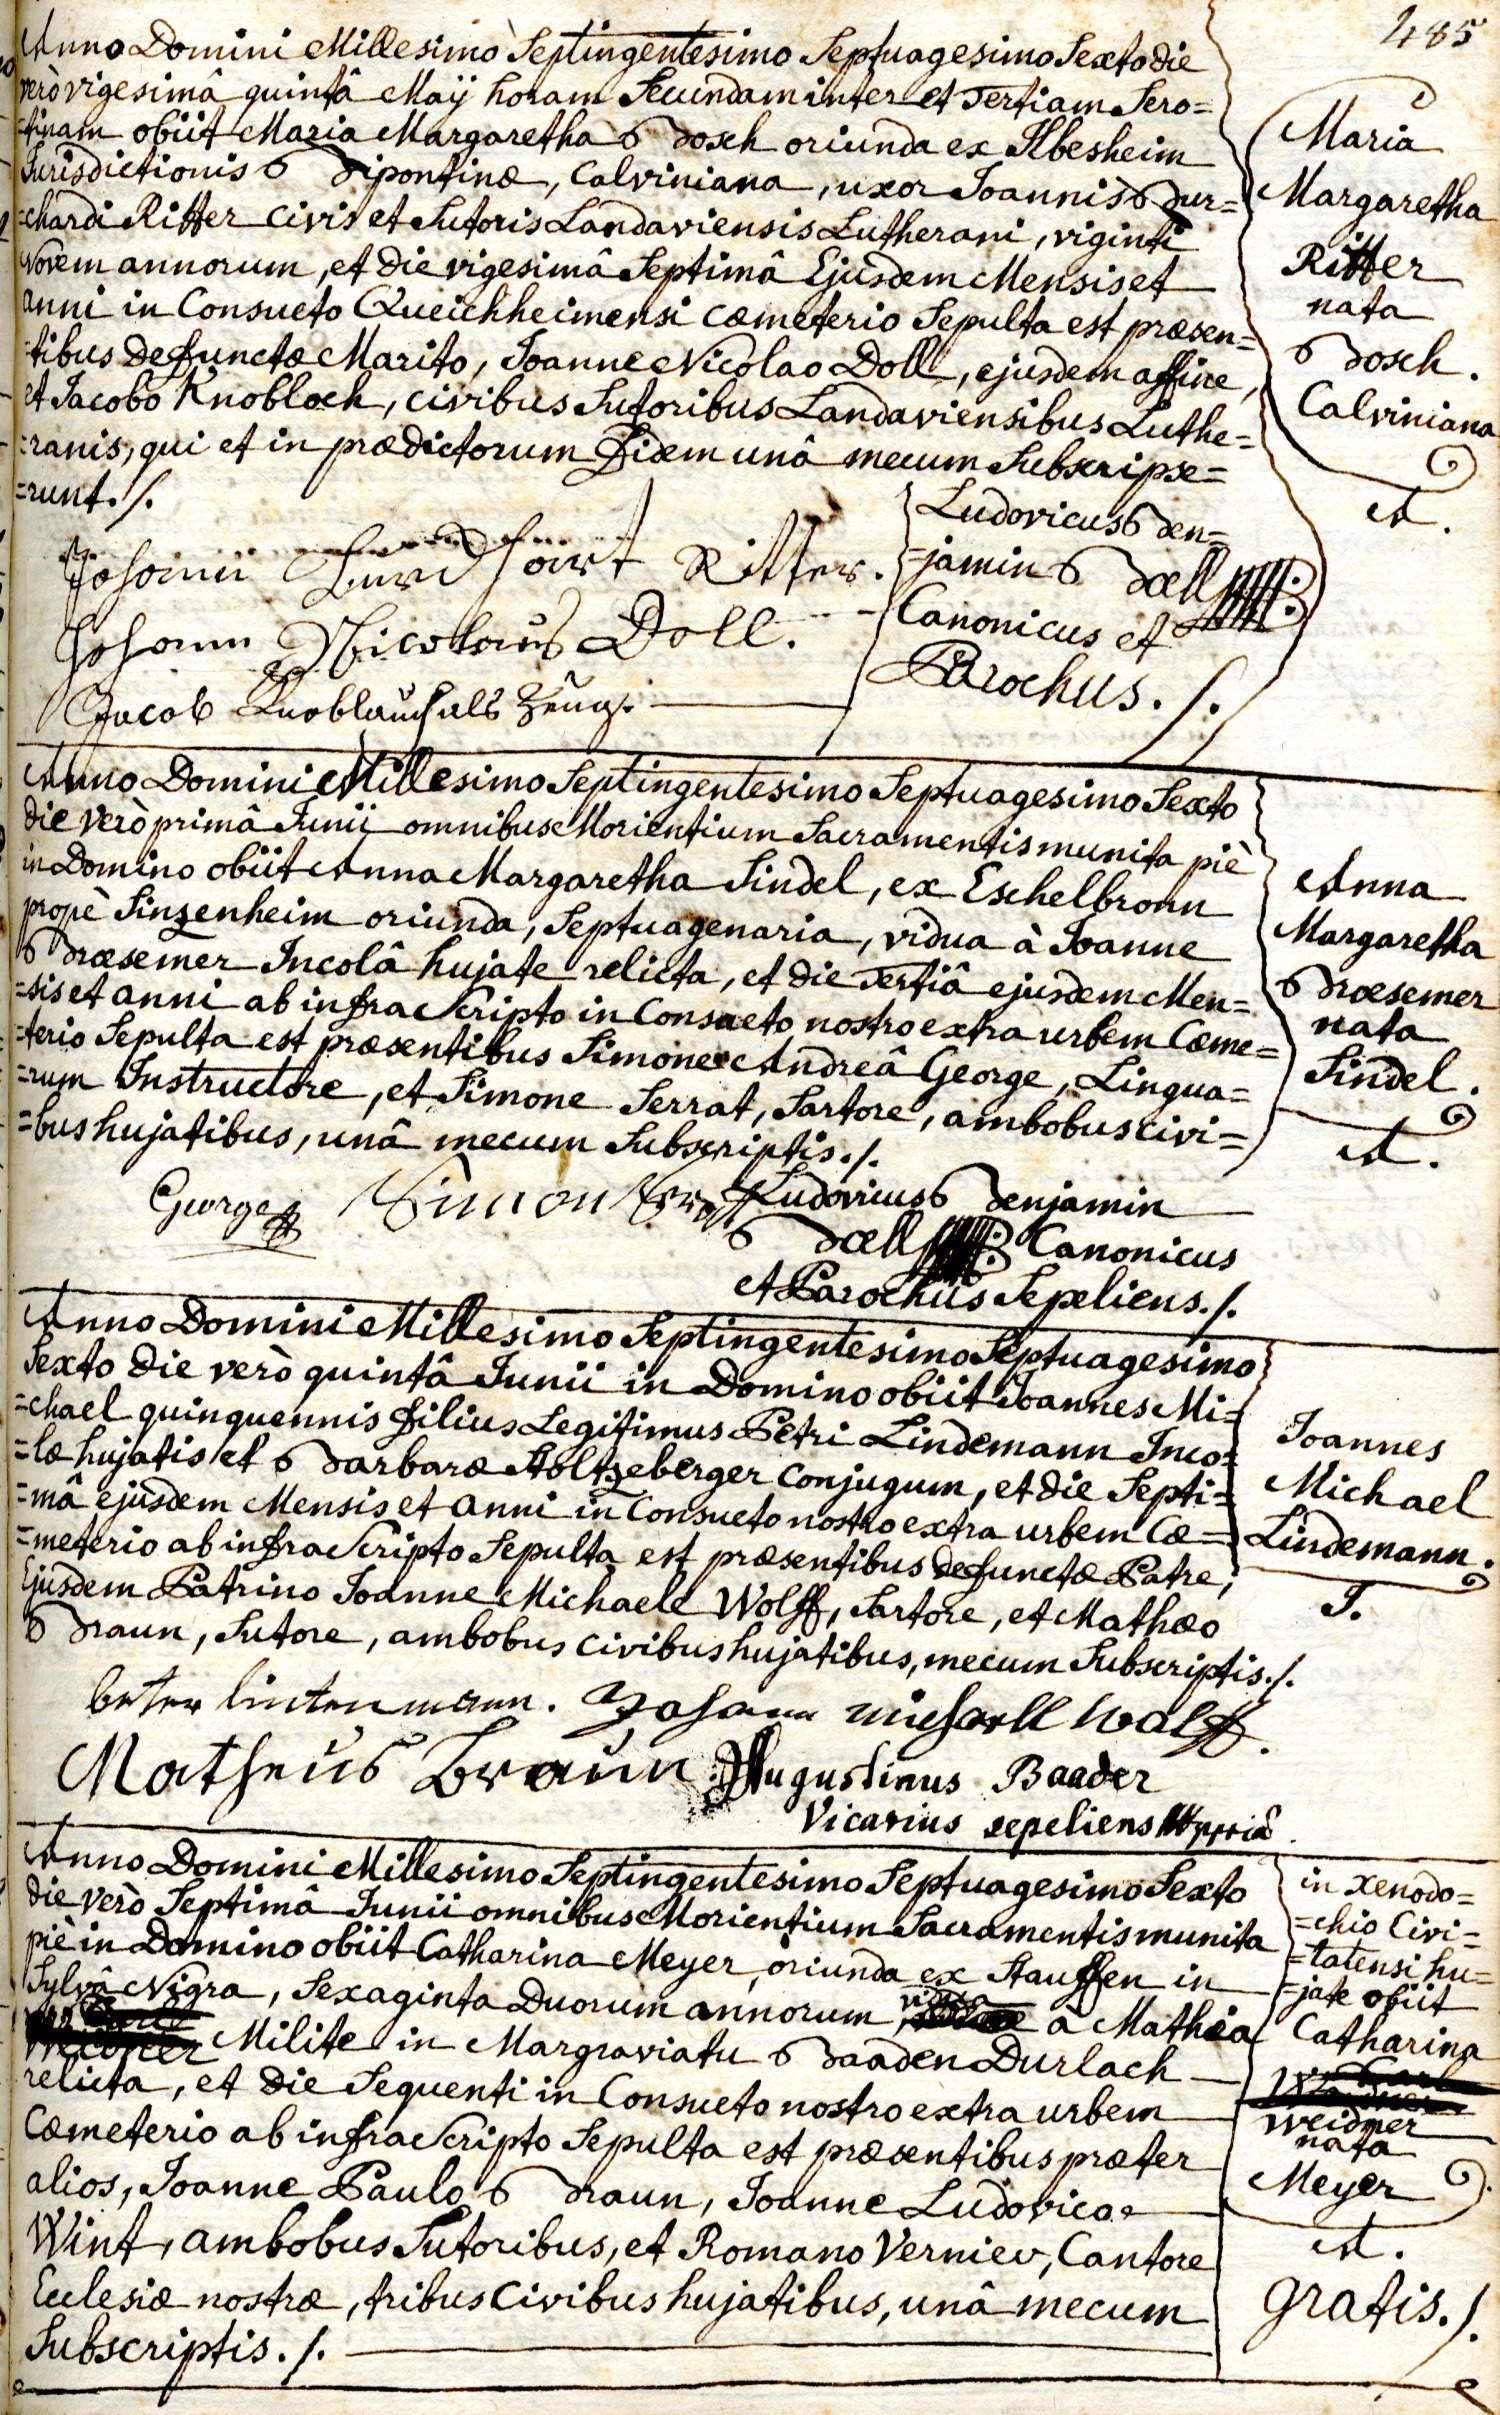 485
Anno Domini Millesimo Septingentesimo Septuagesimo Sexto die
verò vigesimâ quintâ Maÿ horam Secundam inter et Tertiam Sero=
=tinam obiit Maria Margaretha Bosch oriunda ex Ilbesheim
Jurisdictionis Bipontinæ, Calviniana, uxor Joannis Bur=
=chardi Ritter Civis et Sutoris Landaviensis Lutherani, viginti
Novem annorum, et die vigesimâ Septimâ Ejusdem Mensis et
anni in Consueto Queichheimensi Cæmeterio Sepulta est præsen=
=tibus defunctæ Marito, Joanne Nicolao Doll, ejusdem affine,
et Jacobo Knobloch, Civibus Sutoribus Landaviensibus Luthe=
=ranis, qui et in prædictorum Fidem unâ mecum Subscripse=
=runt./.
Maria
Margaretha
Ritter
nata
Bosch.
Calviniana
A.
Johann Burdhart Ritter.
Johann Nicolaus Doll.
Jacob Knoblauch als Zeug.
Ludovicus Ben=
=jamin Bœll
Canonicus et
Parochus./.
Anno Domini Millesimo Septingentesimo Septuagesimo Sexto
die verò primâ Junii omnibus Morientium Sacramentis munita piè
in Domino obiit Anna Margaretha Sindel, ex Eschelbronn
propè Sinzenheim oriunda, Septuagenaria, vidua à Joanne
Bræsemer Incolâ hujate relicta, et die Tertiâ ejusdem Men=
=sis et anni ab infra Scripto in Consueto nostro extra urbem Cæme=
=terio Sepulta est præsentibus Simone Andreâ George, Lingua=
=rum Instructore, et Simone Serrat, Sartore, ambobus Civi=
=bus hujatibus, unâ mecum Subscriptis./.
Anna
Margaretha
Bræsemer
nata
Sindel.
A.
George
Simon Serat
Ludovicus Benjamin
Bœll Canonicus
et Parochus Sepeliens./.
Anno Domini Millesimo Septingentesimo Septuagesimo
Sexto die verò quintâ Junii in Domino obiit Joannes Mi=
=chael quinquennis Filius Legitimus Petri Lindemann Inco=
=læ hujatis et Barbaræ Holtzeberger Conjugum, et die Septi=
=mâ ejusdem Mensis et anni in Consueto nostro extra urbem Cæ=
=meterio ab infra Scripto Sepulta est præsentibus defunctæ Patre,
Ejusdem Patrino Joanne Michaele Wolff, Sartore, et Mathæo
Braun, Sutore, ambobus Civibus hujatibus, mecum Subscriptis./.
Joannes
Michael
Lindemann.
J.
beter lintenmann. Johann michaell Wolff.
Matheus Braun
Augustinus Baader
Vicarius sepeliens mppriâ
Anno Domini Millesimo Septingentesimo Septuagesimo Sexto
die verò Septimâ Junii omnibus Morientium Sacramentis munita
piè in Domino obiit Catharina Meyer, oriunda ex Stauffen in
Sylvâ Nigra, Sexaginta Duorum annorum, vidua à Mathia
Weidner Milite in Margraviatu Baaden Durlach
relicta, et die Sequenti in Consueto nostro extra urbem
Cæmeterio ab infra Scripto Sepulta est præsentibus præter
alios, Joanne Paulo Braun, Joanne Ludovico
Wint, ambobus Sutoribus, et Romano Vernier, Cantore
Ecclesiæ nostræ, tribus Civibus hujatibus, unâ mecum
Subscriptis./.
in xenodo=
=chio Civi=
=tatensi hu=
=jate obiit
Catharina
Weidner
nata
Meyer
A.
gratis./.